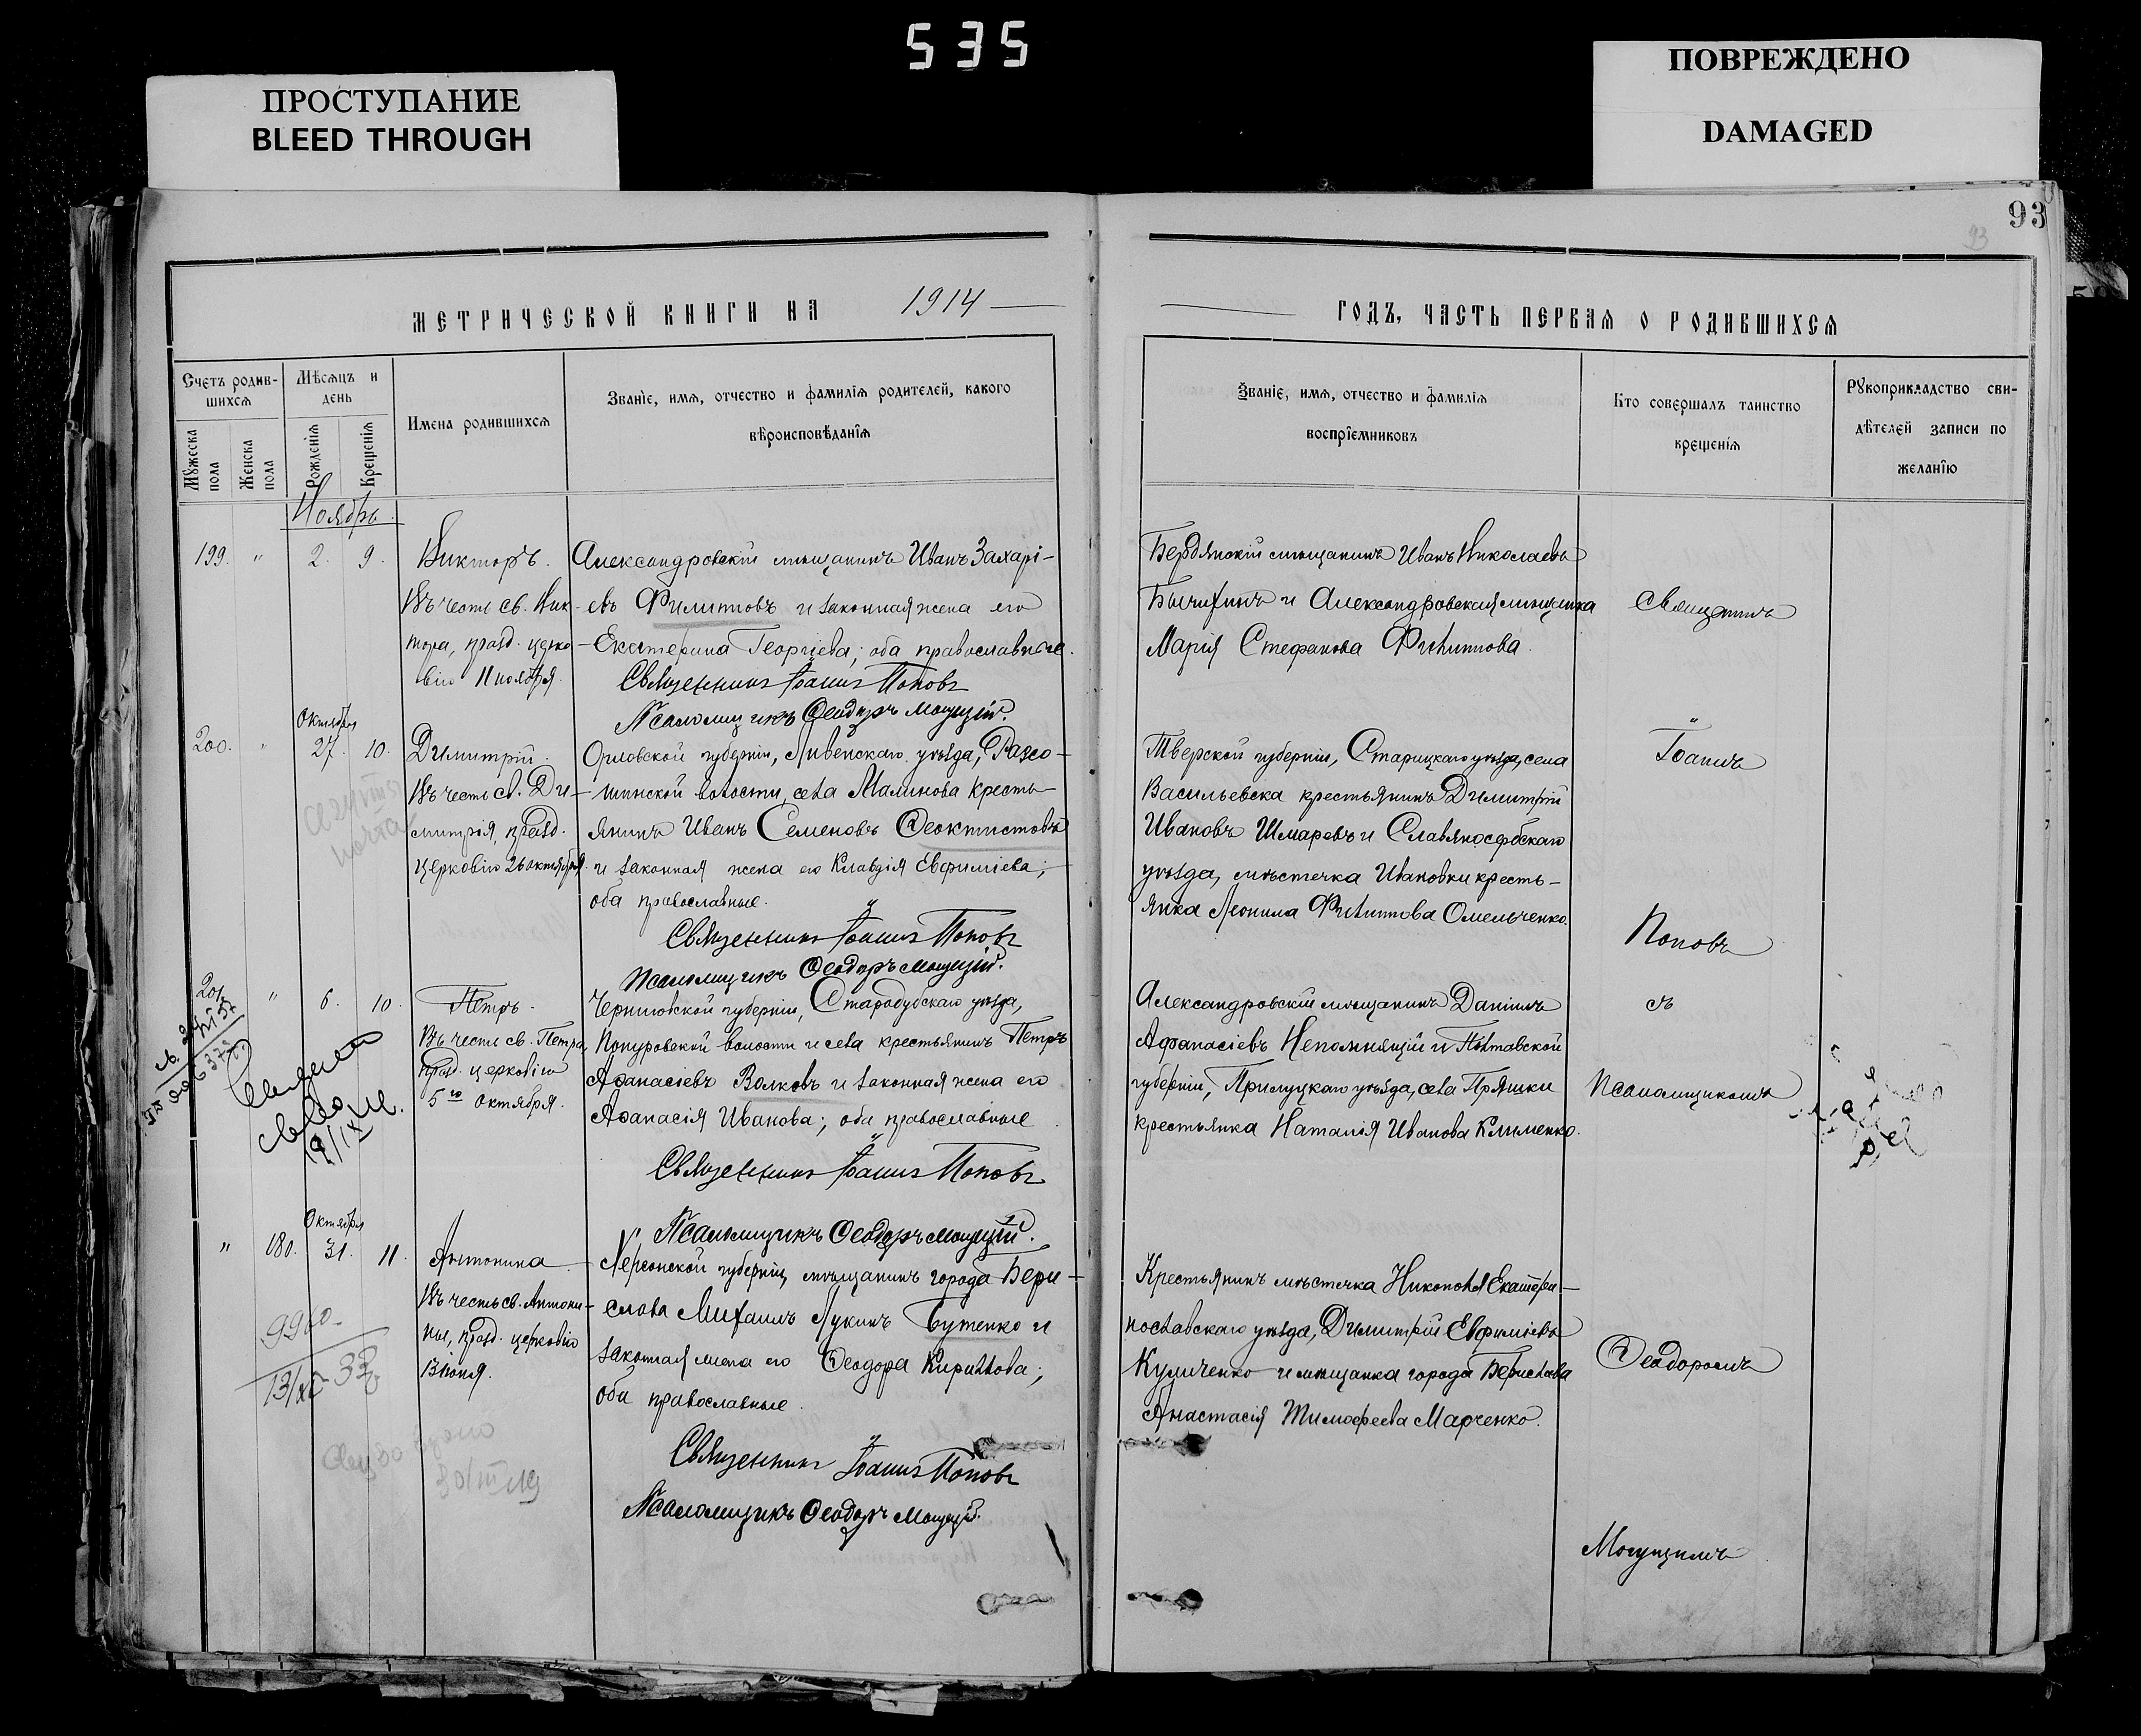 535
ПРОСТУПАНИЕ
BLEED THROUGH
ПОВРЕЖДЕНО
DAMAGED
93
93
МЕТРИЧЕСКОЙ КНИГИ НА 1914
Счетъ родив-
шихся
Мѣсяцъ и
день
Мужеска
пола
Женска
пола
Рожденія
Крещенія
Имена родившихся
Званіе, имя, отчество и фамилія родителей, какого
вѣроисповѣданія
Ноябрь
199. " 2. 9. Викторъ. Александровскій мѣщанинъ Иванъ Захарі-
Въ честь св. Вик- евъ Филиповъ и законная жена его
тора, празд. церко- Екатерина Георгіева; оба православные.
вію 11 ноября.
Священникъ Іоаннъ Поповъ
Псаломщикъ Ѳеодоръ Могущій.
Октября
200. " 27. 10. Димитрій. Орловской губерніи, Ливенскаго уѣзда,
Въ честь св. Ди- волости, села Малинова кресть-
митрія, празд. янинъ Иванъ Семеновъ Ѳеоктистовъ
церковію 26 октября. и законная жена его Клавдія Евфиміева;
оба православные.
Священникъ Іоаннъ Поповъ
Псаломщикъ Ѳеодоръ Могущій.
201. " 6. 10. Петръ. Черниговской губерніи, Стародубскаго уѣзда,
Въ честь св. Петра, волости и села крестьянинъ Петръ
празд. церковію Аѳанасіевъ Волковъ и законная жена его
5го октября. Аѳанасія Иванова; оба православные.
Священникъ Іоаннъ Поповъ
Псаломщикъ Ѳеодоръ Могущій.
Октября
" 180. 31. 11. Антонина Херсонской губерніи, мѣщанинъ города Бери-
Въ честь св. Антони- слава Михаилъ Лукинъ Бутенко и
ны, празд. церковію законная жена его Ѳеодора Кириллова;
13 іюня. оба православные.
9960
Священникъ Іоаннъ Поповъ
Псаломщикъ Ѳеодоръ Могущій.
ГОДЪ, ЧАСТЬ ПЕРВАЯ О РОДИВШИХСЯ
Званіе, имя, отчество и фамилія
воспріемниковъ
Кто совершалъ таинство
крещенія
Рукоприкладство сви-
дѣтелей записи по
желанію
Бердянскій мѣщанинъ Иванъ Николаевъ
Бычихинъ и Александровская мѣщанка
Марія Стефанова Филиппова.
Священникъ
Тверской губерніи, Старицкаго уѣзда, села
Васильевска крестьянинъ Димитрій
Ивановъ Шмаревъ и Славяносербскаго
уѣзда, мѣстечка Ивановки кресть-
янка Леонила Филиппова Омельченко.
Іоаннъ
Поповъ
Александровскій мѣщанинъ Даніилъ
Афанасіевъ Непомнящій и Полтавской
губерніи, Прилуцкаго уѣзда, села Пряшки
крестьянка Наталія Иванова Клименко.
съ
Псаломщикомъ
Крестьянинъ мѣстечка Никополя Екатери-
нославскаго уѣзда, Димитрій Евфиміевъ
Куличенко и мѣщанка города Берислава
Анастасія Тимофеева Марченко.
Ѳеодоромъ
Могущимъ